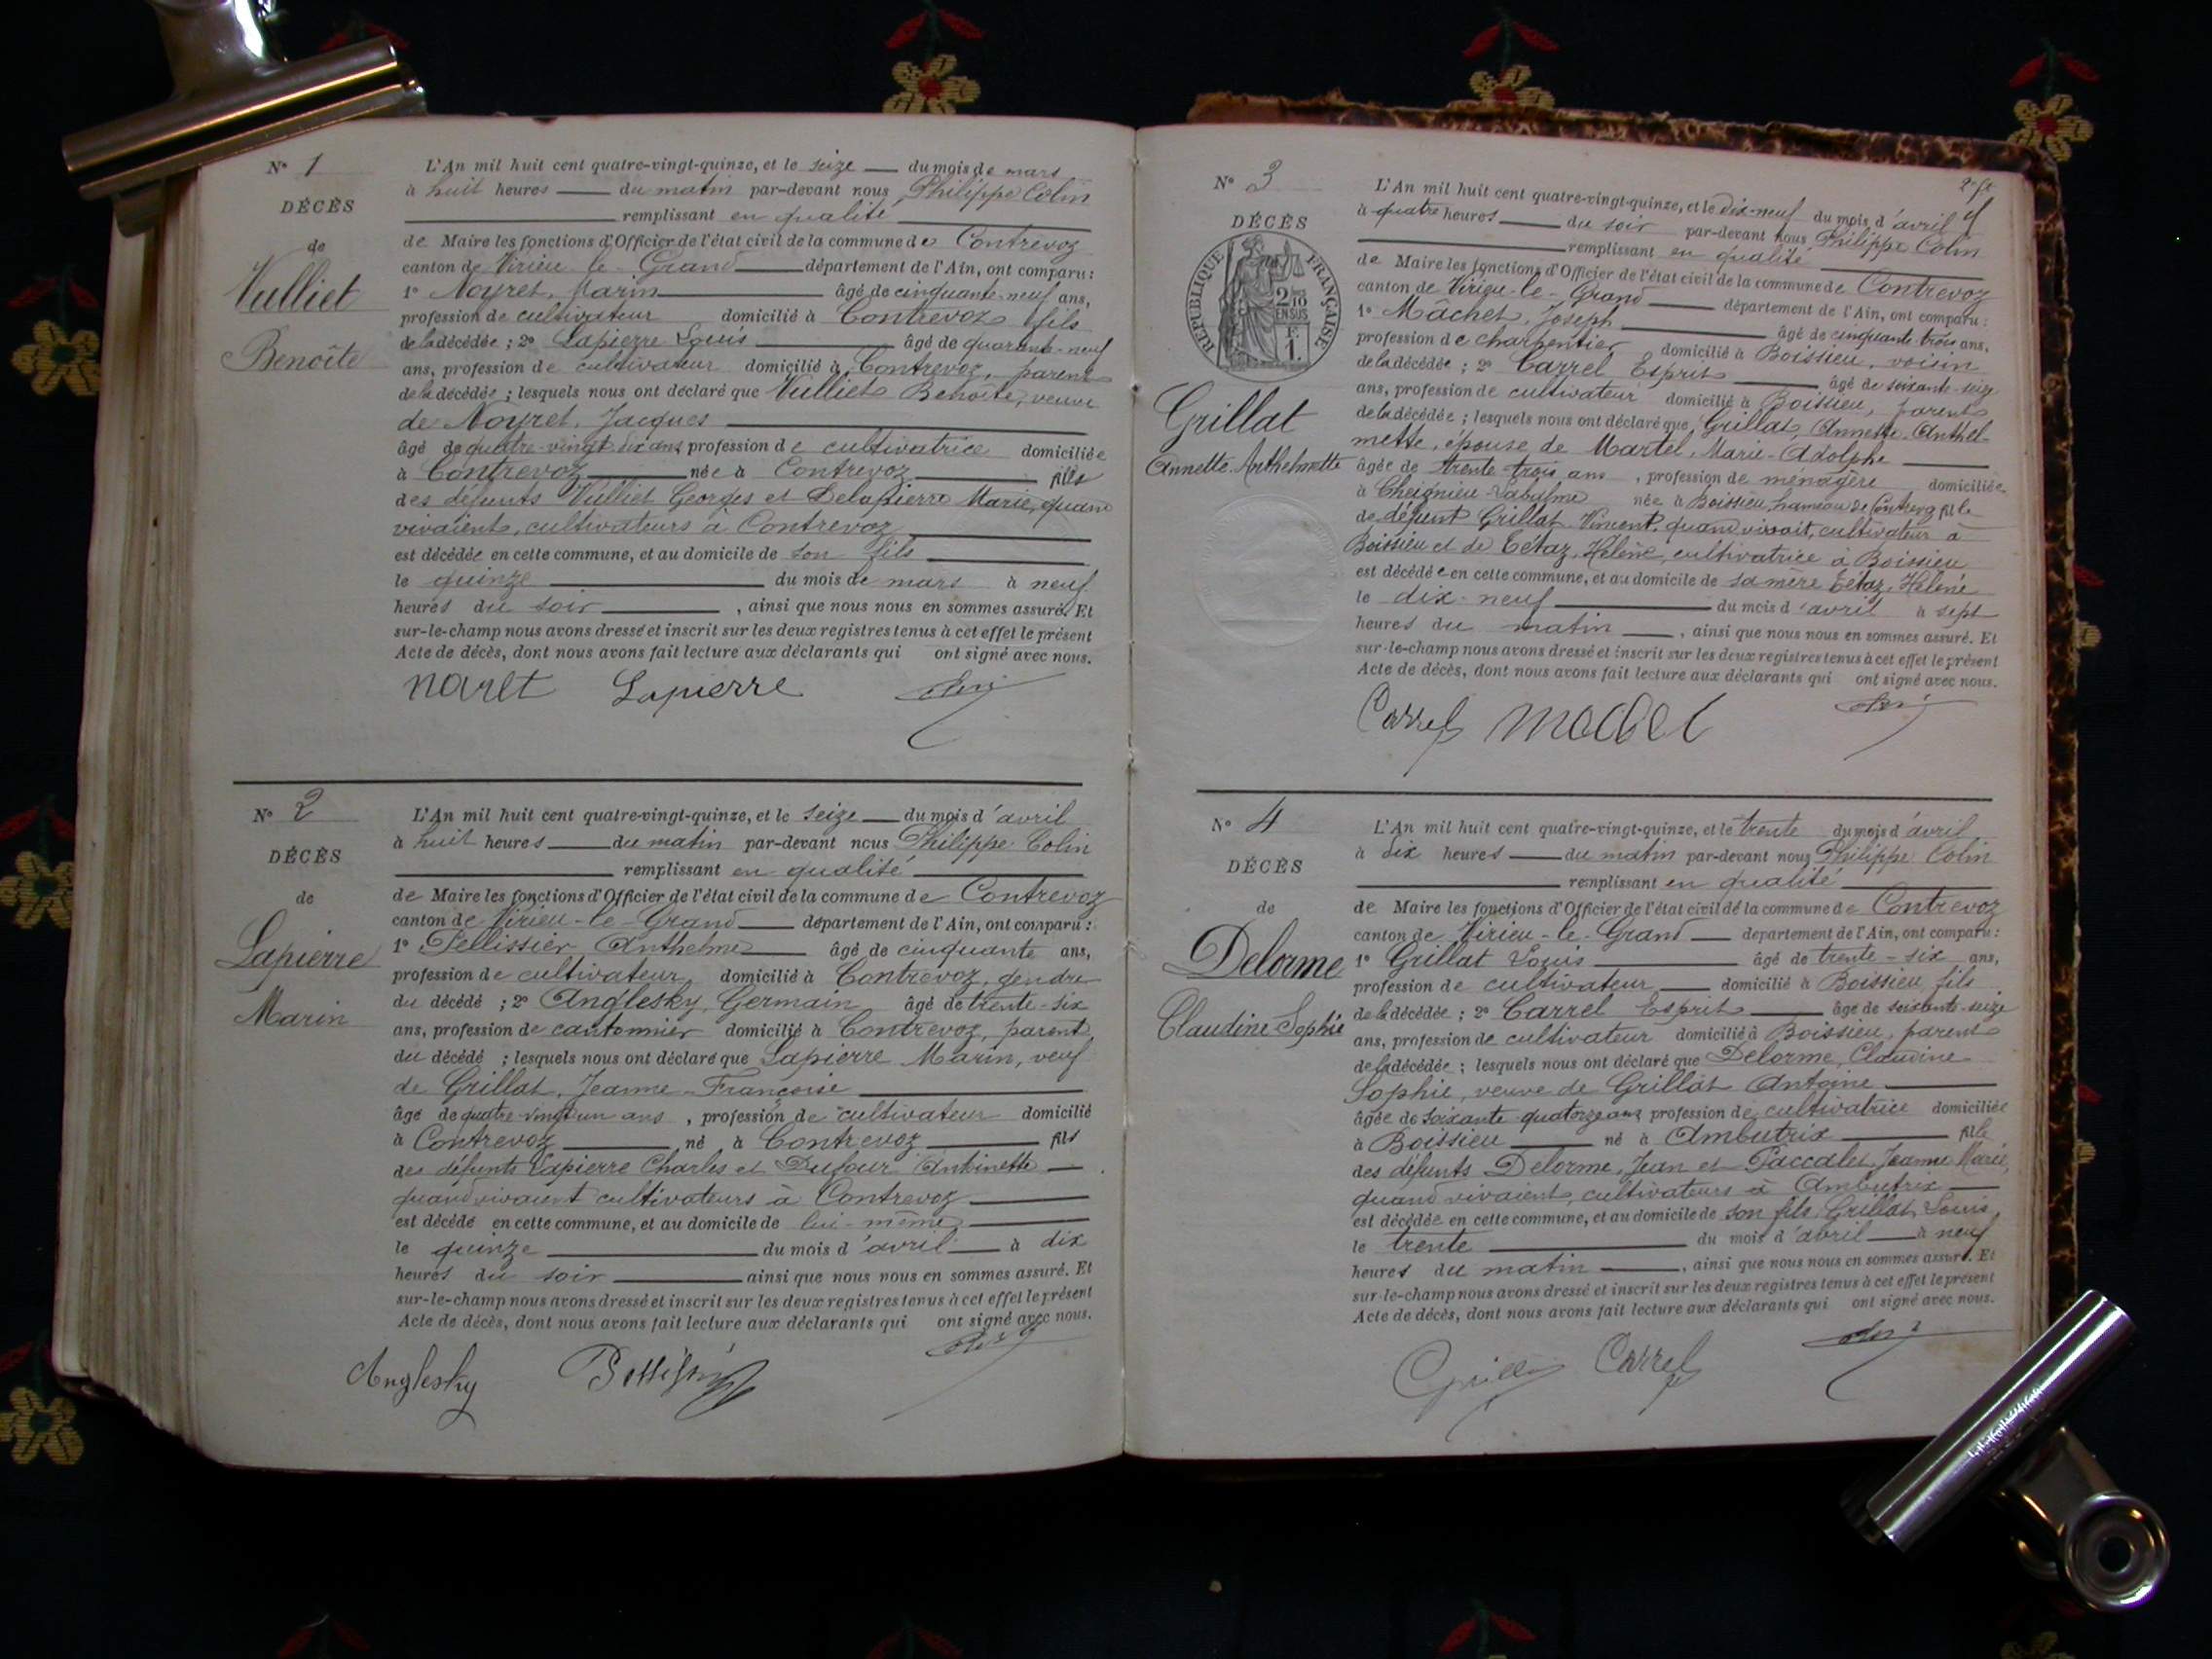 N° 1
DÉCÈS
de
Vulliet
Benoîte
L'An mil huit cent quatre-vingt-quinze, et le seize du mois de mars
à huit heures du matin par-devant nous Philippe Colin
remplissant en qualité
de Maire les fonctions d'Officier de l'état civil de la commune de Contrevoz
canton de Virieu-le-Grand département de l'Ain, ont comparu :
1° Noyret, Marin âgé de cinquante-neuf ans,
profession de cultivateur domicilié à Contrevoz fils
de la décédée ; 2° Lapierre Louis âgé de quarante-neuf
ans, profession de cultivateur domicilié à Contrevoz, parent
de la décédée ; lesquels nous ont déclaré que Vulliet Benoîte, veuve
de Noyret, Jacques
âgé de quatre-vingt-dix ans profession de cultivatrice domiciliée
à Contrevoz née à Contrevoz fille
des défunts Vulliet Georges et Delapierre Marie, quand
vivaient, cultivateurs à Contrevoz
est décédée en cette commune, et au domicile de son fils
le quinze du mois de mars à neuf
heures du soir , ainsi que nous nous en sommes assuré. Et
sur-le-champ nous avons dressé et inscrit sur les deux registres tenus à cet effet le présent
Acte de décès, dont nous avons fait lecture aux déclarants qui ont signé avec nous.
naret Lapierre
N° 2
DÉCÈS
de
Lapierre
Marin
L'An mil huit cent quatre-vingt-quinze, et le seize du mois d'avril
à huit heures du matin par-devant nous Philippe Colin
remplissant en qualité
de Maire les fonctions d'Officier de l'état civil de la commune de Contrevoz
canton de Virieu-le-Grand département de l'Ain, ont comparu :
1° Pellissier, Anthelme âgé de cinquante ans,
profession de cultivateur domicilié à Contrevoz, gendre
du décédé ; 2° Anglesky, Germain âgé de trente-six
ans, profession de cantonnier domicilié à Contrevoz, parent
du décédé ; lesquels nous ont déclaré que Lapierre Marin, veuf
de Grillat, Jeanne-Françoise
âgé de quatre-vingt-un ans , profession de cultivateur domicilié
à Contrevoz né à Contrevoz fils
des défunts Lapierre Charles et Dufour Antoinette
quand vivaient cultivateurs à Contrevoz
est décédé en cette commune, et au domicile de lui-même
le quinze du mois d'avril à dix
heures du soir ainsi que nous nous en sommes assuré. Et
sur-le-champ nous avons dressé et inscrit sur les deux registres tenus à cet effet le présent
Acte de décès, dont nous avons fait lecture aux déclarants qui ont signé avec nous.
Anglesky
N° 3
DÉCÈS
RÉPUBLIQUE FRANÇAISE
2/10 EN SUS
F. 1.
Grillat
Annette-Anthelmette
L'An mil huit cent quatre-vingt-quinze, et le dix-neuf du mois d'avril
à quatre heures du soir par-devant nous Philippe Colin
remplissant en qualité
de Maire les fonctions d'Officier de l'état civil de la commune de Contrevoz
canton de Virieu-le-Grand département de l'Ain, ont comparu :
1° Mâchet, Joseph âgé de cinquante-trois ans,
profession de charpentier domicilié à Boissieu, voisin
de la décédée ; 2° Carrel Esprit âgé de soixante-seize
ans, profession de cultivateur domicilié à Boissieu, parent
de la décédée ; lesquels nous ont déclaré que Grillat, Annette-Anthel-
mette, épouse de Martel, Marie-Adolphe
âgée de trente-trois ans , profession de ménagère domiciliée
à Cheignieu-Labalme née à Boissieu, hameau de Contrevoz fille
de défunt Grillat Vincent, quand vivait, cultivateur à
Boissieu et de Tétaz, Hélène, cultivatrice à Boissieu
est décédée en cette commune, et au domicile de sa mère Tétaz, Hélène
le dix-neuf du mois d'avril à sept
heures du matin , ainsi que nous nous en sommes assuré. Et
sur-le-champ nous avons dressé et inscrit sur les deux registres tenus à cet effet le présent
Acte de décès, dont nous avons fait lecture aux déclarants qui ont signé avec nous.
Carrel Machet
N° 4
DÉCÈS
de
Delorme
Claudine Sophie
L'An mil huit cent quatre-vingt-quinze, et le trente du mois d'avril
à dix heures du matin par-devant nous Philippe Colin
remplissant en qualité
de Maire les fonctions d'Officier de l'état civil de la commune de Contrevoz
canton de Virieu-le-Grand département de l'Ain, ont comparu :
1° Grillat Louis âgé de trente-six ans,
profession de cultivateur domicilié à Boissieu fils
de la décédée ; 2° Carrel Esprit âgé de soixante-seize
ans, profession de cultivateur domicilié à Boissieu, parent
de la décédée ; lesquels nous ont déclaré que Delorme, Claudine
Sophie, veuve de Grillat Antoine
âgée de soixante-quatorze ans profession de cultivatrice domiciliée
à Boissieu né à Ambutrix fille
des défunts Delorme, Jean et Paccalet, Jeanne Marie,
quand vivaient, cultivateurs à Ambutrix
est décédée en cette commune, et au domicile de son fils Grillat, Louis,
le trente du mois d'avril à neuf
heures du matin , ainsi que nous nous en sommes assuré. Et
sur-le-champ nous avons dressé et inscrit sur les deux registres tenus à cet effet le présent
Acte de décès, dont nous avons fait lecture aux déclarants qui ont signé avec nous.
Grillat Carrel